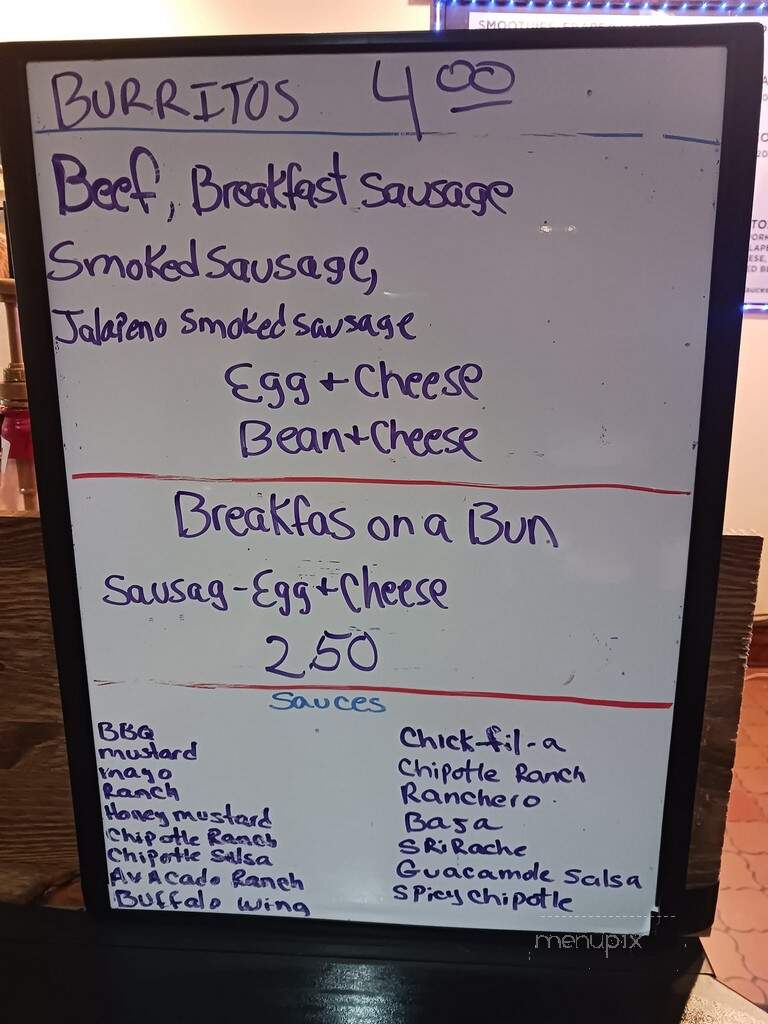 BURRITOS 4 00
Beef, Breakfast Sausage
Smoked Sausage,
Jalapeno Smoked Sausage
Egg + Cheese
Bean + Cheese
Breakfas on a Bun
Sausag - Egg + Cheese
2.50
Sauces
BBQ
mustard
mayo
Ranch
Honey mustard
Chipotle Ranch
Chipotle Salsa
AvAcado Ranch
Buffalo wing
Chick-fil-a
Chipotle Ranch
Ranchero
Baja
SRiRache
Guacamole Salsa
Spicy Chipotle
menupix